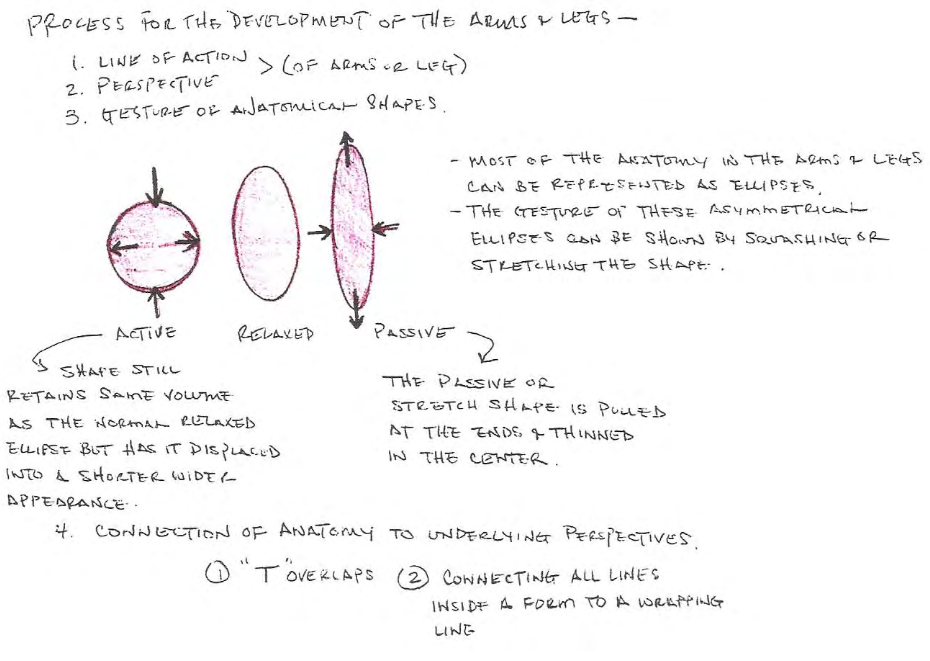 PROCESS FOR THE DEVELOPMENT OF THE ARMS & LEGS —
1. LINE OF ACTION > (OF ARMS OR LEG)
2. PERSPECTIVE
3. GESTURE OF ANATOMICAL SHAPES.
- MOST OF THE ANATOMY IN THE ARMS & LEGS
CAN BE REPRESENTED AS ELLIPSES.
- THE GESTURE OF THESE ASYMMETRICAL
ELLIPSES CAN BE SHOWN BY SQUASHING OR
STRETCHING THE SHAPE.
ACTIVE
RELAXED
PASSIVE
SHAPE STILL
RETAINS SAME VOLUME
AS THE NORMAL RELAXED
ELLIPSE BUT HAS IT DISPLACED
INTO A SHORTER WIDER
APPEARANCE.
THE PASSIVE OR
STRETCH SHAPE IS PULLED
AT THE ENDS & THINNED
IN THE CENTER.
4. CONNECTION OF ANATOMY TO UNDERLYING PERSPECTIVES.
① "T" OVERLAPS ② CONNECTING ALL LINES
INSIDE A FORM TO A WRAPPING
LINE